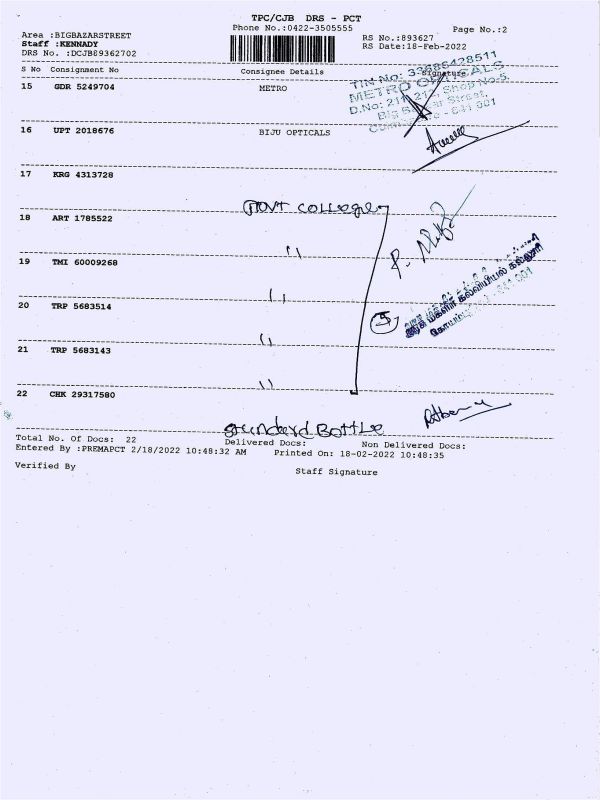 TPC/CJB DRS - PCT
Phone No.:0422-3505555
Page No.:2
Area :BIGBAZARSTREET
Staff :KENNADY
DRS No. :DCJBE9362702
RS No.:893627
RS Date:18-Feb-2022
S No Consignment No Consignee Details Signature
15 GDR 5249704 METRO
TIN No: 33686428511
METRO OPTICALS
D.No: 211, 217, Shop No.5,
Big Bazaar Street,
Coimbatore - 641 001
16 UPT 2018676 BIJU OPTICALS
17 KRG 4313728
Govt College
18 ART 1785522
19 TMI 60009268
20 TRP 5683514
5
21 TRP 5683143
22 CHK 29317580
Bottle
Total No. Of Docs: 22 Delivered Docs: Non Delivered Docs:
Entered By :PREMAPCT 2/18/2022 10:48:32 AM Printed On: 18-02-2022 10:48:35
Verified By Staff Signature